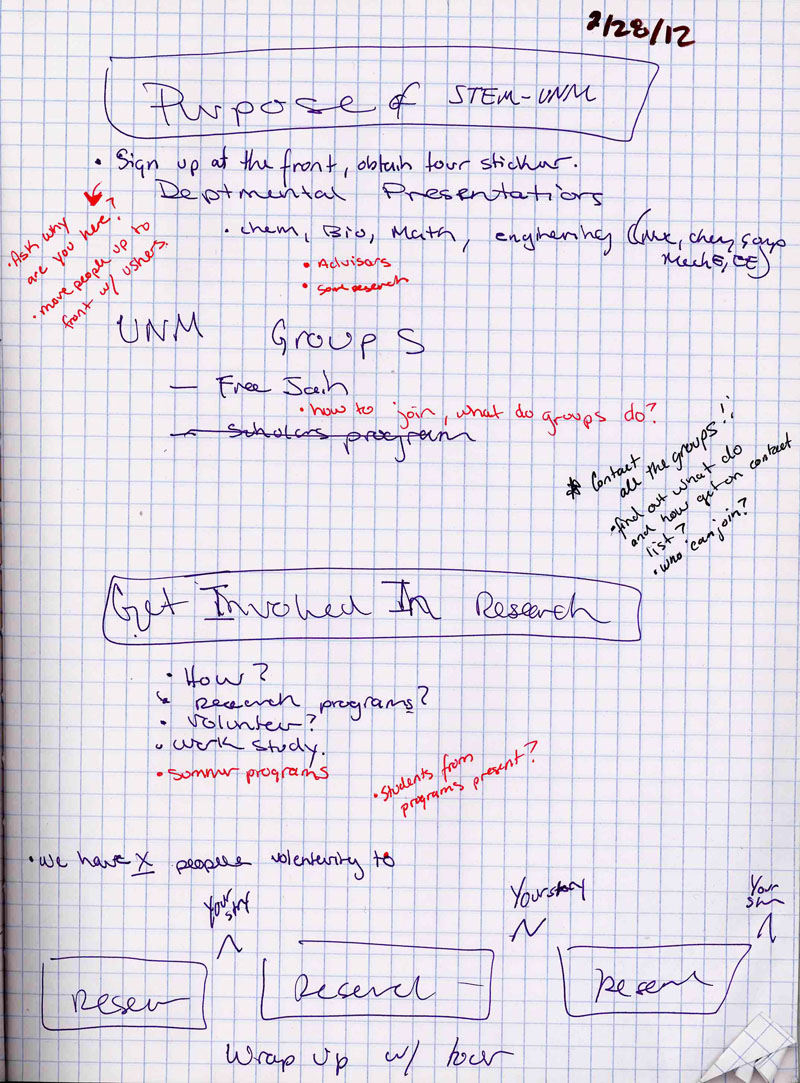 2/28/12
Purpose of STEM-UNM
• Sign up at the front, obtain tour sticker.
Deptmental Presentations
• Ask why
are you here?
• move people up to
front w/ ushers.
• chem, Bio, Math, engineering (
MechE, EE)
• Advisors
• some research
UNM Groups
— Free
• how to join, what do groups do?
— Scholars program
* Contact
all the groups!!
• find out what do
and how get on contact
list?
• who can join?
Get Involved In Research
• How?
• Research programs?
• Volunteer?
• work study.
• summer programs
• Students from
programs present?
• we have X people volenterity to
Your story
Your story
Your
Research
Research
Wrap up w/ tour